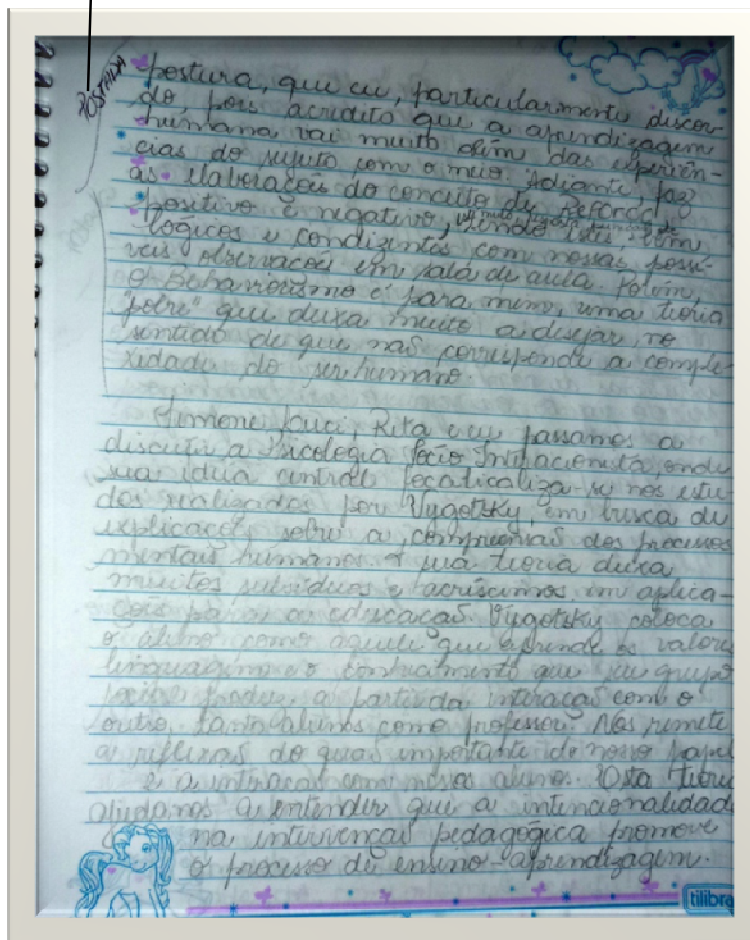 POSTADA
postura, que eu, particularmente discor-
do, pois acredito que a aprendizagem
humana vai muito além das experiên-
cias do sujeito com o meio. Adiante, faz
as elaborações do conceito de Reforço
positivo e negativo, sendo estes bem
lógicos e condizentes com nossas possí-
veis observações em sala de aula. Porém,
o Behaviorismo é para mim, uma teoria
"pobre" que deixa muito a desejar, no
sentido de que não corresponde a comple-
xidade do ser humano.
Simone, Rita e eu passamos a
discutir a Psicologia Sócio Interacionista, onde
sua idéia central focaliza-se nos estu-
dos realizados por Vygotsky, em busca de
explicações sobre a compreensão dos processos
mentais humanos. A sua teoria deixa
muitos subsídios e acréscimos em aplica-
ções para a educação. Vygotsky coloca
o aluno como aquele que aprende os valores
linguagem e o conhecimento que seu grupo
produz, a partir da interação com o
outro, tanto alunos como professor. Nos remete
a reflexão do quão importante de nosso papel
é a interação com nossos alunos. Esta teoria
ajudanos a entender que a intencionalidade
na intervenção pedagógica promove
o processo de ensino-aprendizagem.
tilibra